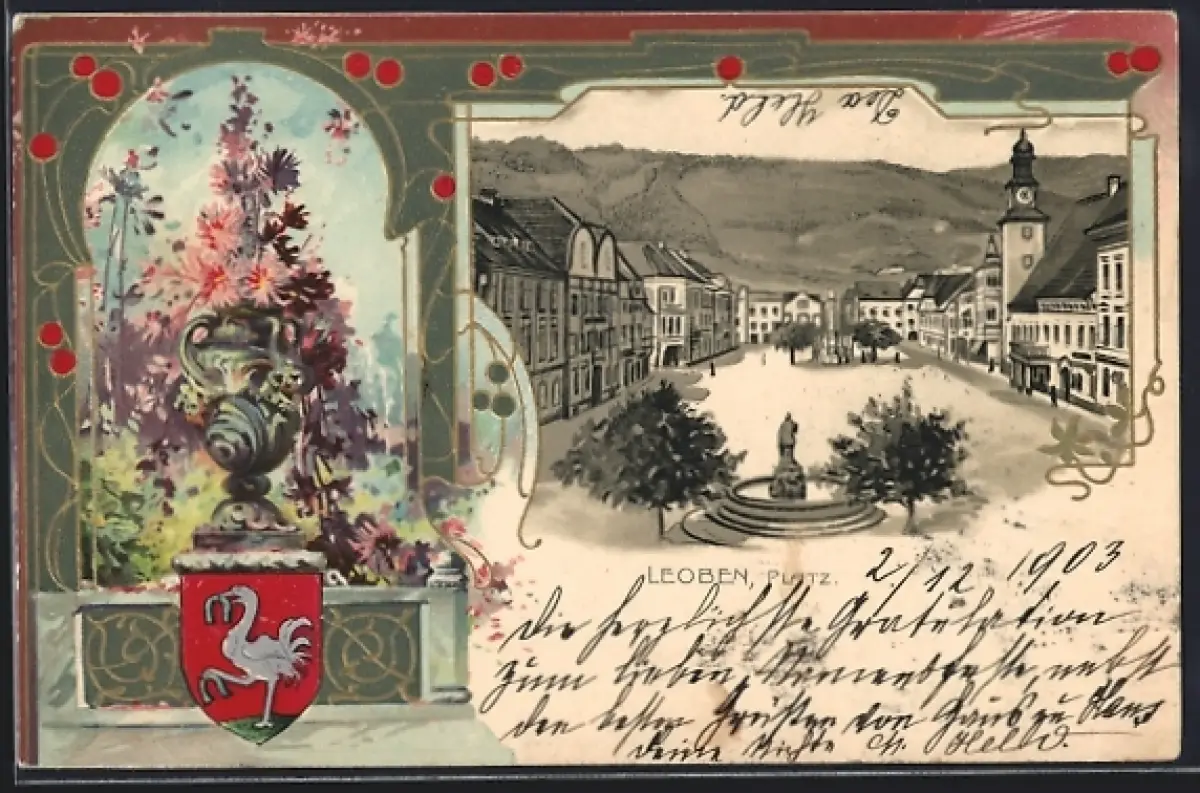 Dea Held.
LEOBEN, PLATZ.
2/12 1903
Die herzlichste Gratulation
zum lieben Namensfeste nebst
den besten Grüßen von Haus zu Haus
Deine Nichte M. Held.